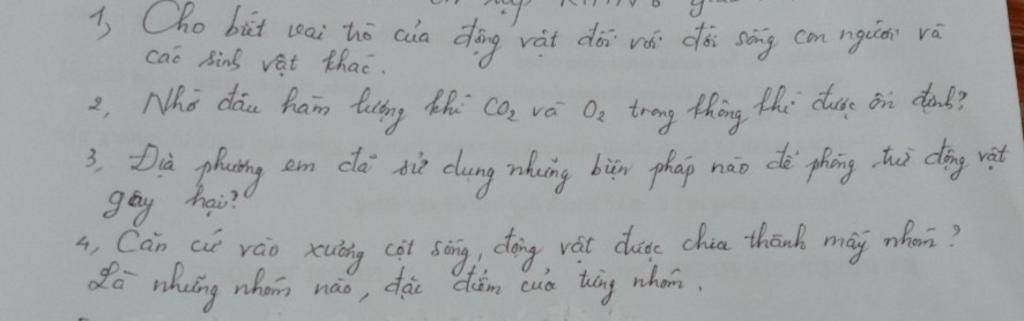 1, Cho biết vai trò của động vật đối với đời sống con người và
các sinh vật khác.
2, Nhờ đâu hàm lượng khí CO2 và O2 trong không khí được ổn định?
3, Địa phương em đã sử dụng những biện pháp nào để phòng trừ động vật
gây hại?
4, Căn cứ vào xương cột sống, động vật được chia thành mấy nhóm?
Là những nhóm nào, đặc điểm của từng nhóm.